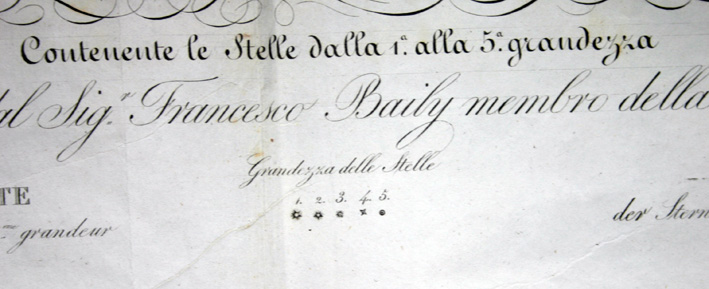 Contenente le Stelle dalla 1.ª alla 5.ª grandezza
al Sig.r Francesco Baily membro della
Grandezza delle Stelle
1. 2. 3. 4. 5.
TE
me grandeur
der Stern